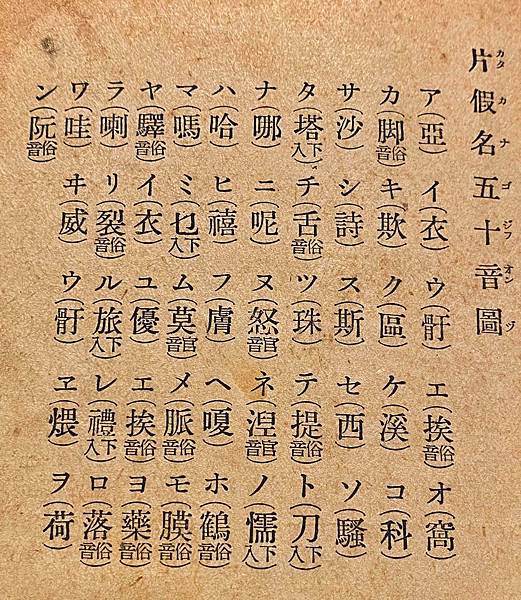 片假名五十音圖
カタカナゴジフオンヅ
ア(亞) イ(衣) ウ(骬) エ(挨俗音) オ(窩)
カ(脚俗音) キ(欺) ク(區) ケ(溪) コ(科)
サ(沙) シ(詩) ス(斯) セ(西) ソ(騷)
タ(塔下入) チ(舌俗音) ツ(珠) テ(提俗音) ト(刀下入)
ナ(哪) ニ(呢) ヌ(怒官音) ネ(湼官音) ノ(懦下入)
ハ(哈) ヒ(禧) フ(膚) ヘ(嗄) ホ(鶴俗音)
マ(嗎) ミ(乜下入) ム(莫官音) メ(脈俗音) モ(膜俗音)
ヤ(驛俗音) イ(衣) ユ(優) エ(挨俗音) ヨ(藥俗音)
ラ(喇) リ(裂俗音) ル(旅下入) レ(禮下入) ロ(落俗音)
ワ(哇) ヰ(威) ウ(骬) ヱ(煨) ヲ(荷)
ン(阮俗音)